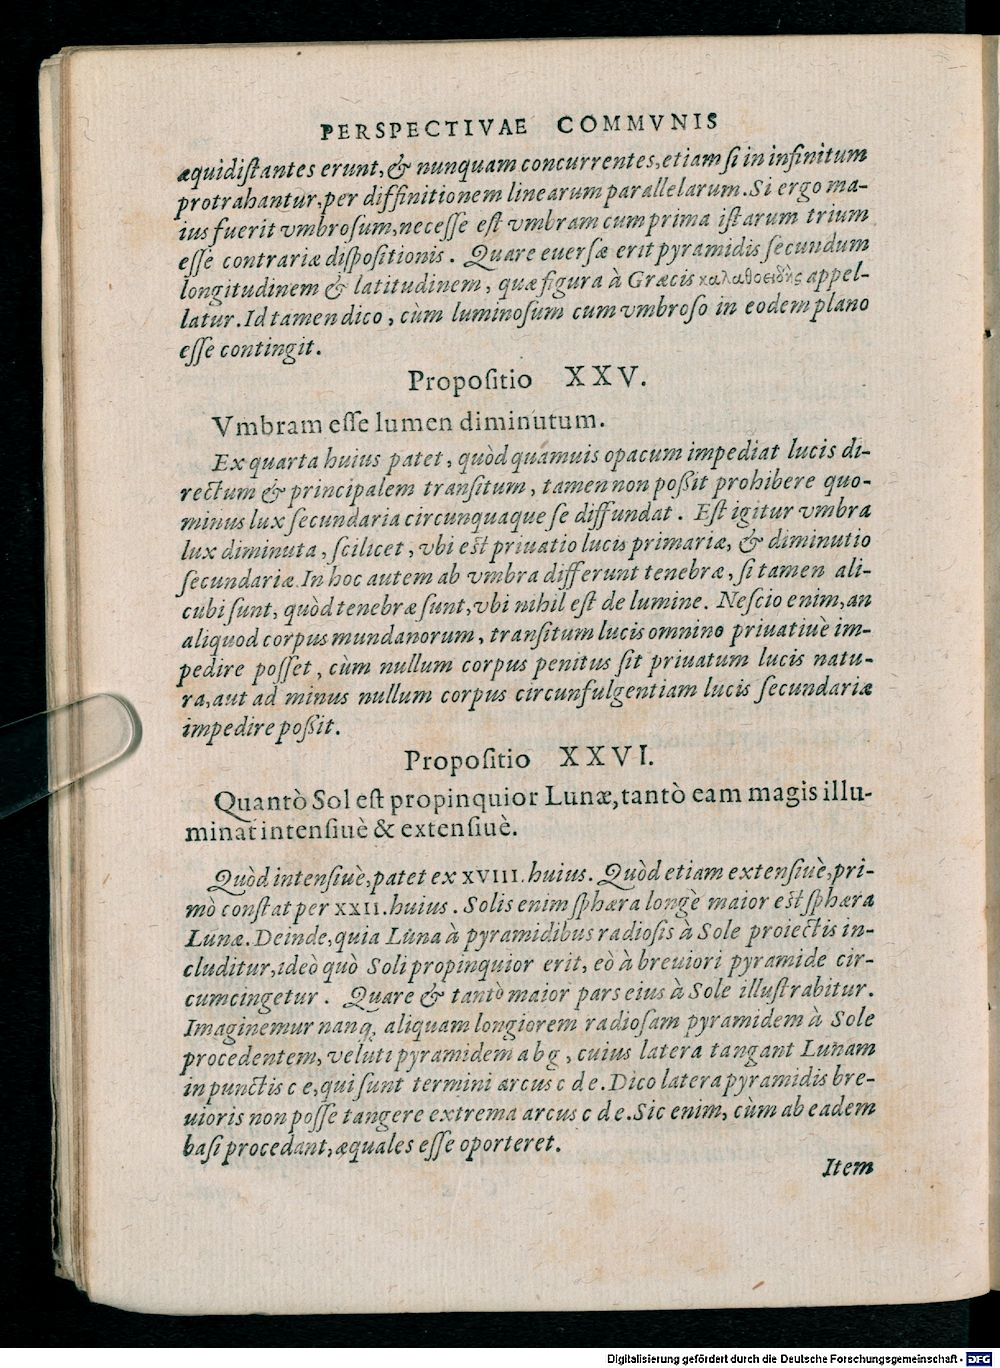 PERSPECTIVAE COMMVNIS
æquidistantes erunt, & nunquam concurrentes, etiam si in infinitum
protrahantur, per diffinitionem linearum parallelarum. Si ergo ma-
ius fuerit vmbrosum, necesse est vmbram cum prima istarum trium
esse contrariæ dispositionis. Quare euersæ erit pyramidis secundum
longitudinem & latitudinem, quæ figura à Græcis καλαθοειδὴς appel-
latur. Id tamen dico, cùm luminosum cum vmbroso in eodem plano
esse contingit.
Propositio XXV.
Vmbram esse lumen diminutum.
Ex quarta huius patet, quòd quamuis opacum impediat lucis di-
rectum & principalem transitum, tamen non poßit prohibere quo-
minus lux secundaria circunquaque se diffundat. Est igitur vmbra
lux diminuta, scilicet, vbi est priuatio lucis primariæ, & diminutio
secundariæ. In hoc autem ab vmbra differunt tenebræ, si tamen ali-
cubi sunt, quòd tenebræ sunt, vbi nihil est de lumine. Nescio enim, an
aliquod corpus mundanorum, transitum lucis omnino priuatiuè im-
pedire posset, cùm nullum corpus penitus sit priuatum lucis natu-
ra, aut ad minus nullum corpus circunfulgentiam lucis secundariæ
impedire poßit.
Propositio XXVI.
Quantò Sol est propinquior Lunæ, tantò eam magis illu-
minat intensiuè & extensiuè.
Quòd intensiuè, patet ex XVIII. huius. Quòd etiam extensiuè, pri-
mò constat per XXII. huius. Solis enim sphæra longè maior est sphæra
Lunæ. Deinde, quia Luna à pyramidibus radiosis à Sole proiectis in-
cluditur, ideò quò Soli propinquior erit, eò à breuiori pyramide cir-
cumcingetur. Quare & tantò maior pars eius à Sole illustrabitur.
Imaginemur nanq́, aliquam longiorem radiosam pyramidem à Sole
procedentem, veluti pyramidem a b g, cuius latera tangant Lunam
in punctis c e, qui sunt termini arcus c d e. Dico latera pyramidis bre-
uioris non posse tangere extrema arcus c d e. Sic enim, cùm ab eadem
basi procedant, æquales esse oporteret.
Item
Digitalisierung gefördert durch die Deutsche Forschungsgemeinschaft - DFG